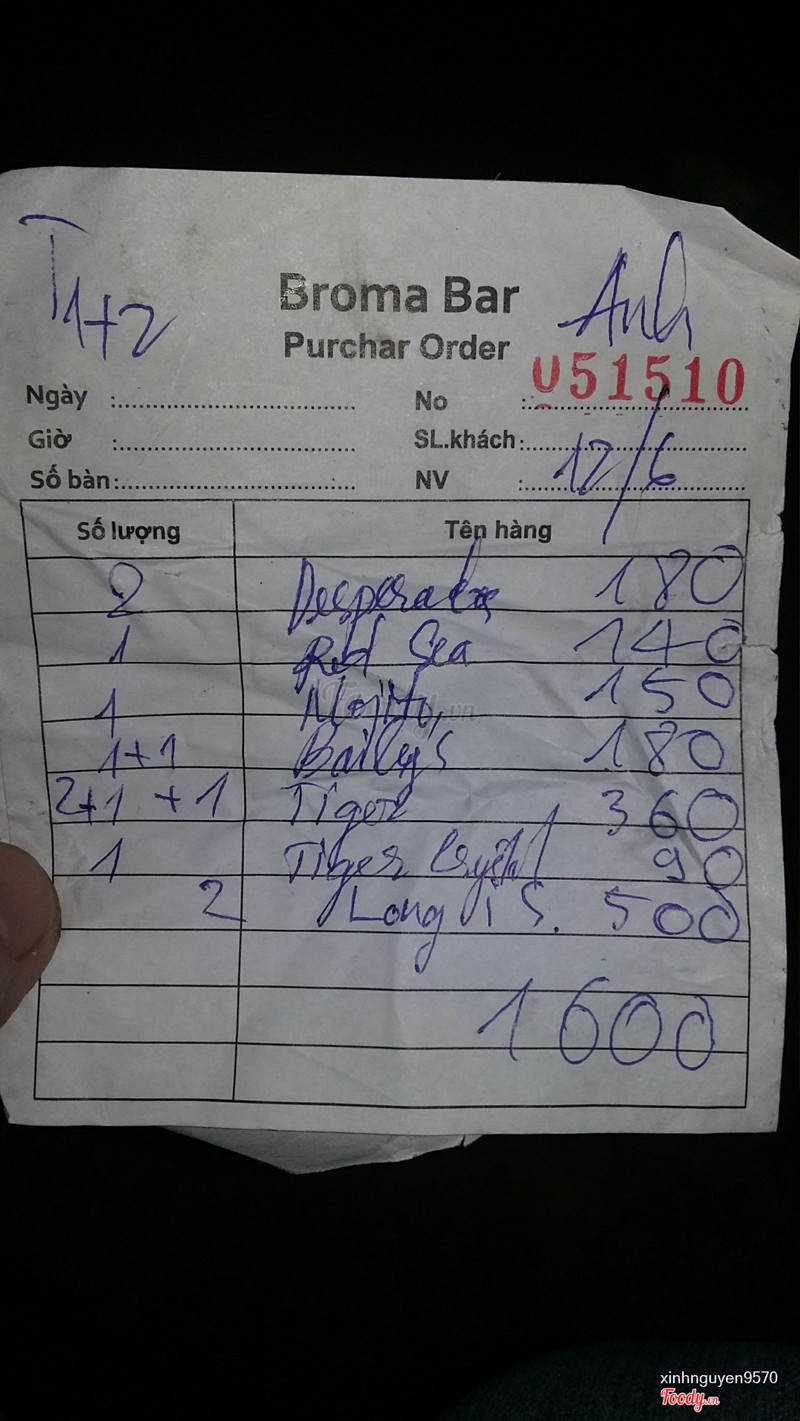 T1+2
Anh
Broma Bar
Purchar Order
Ngày :
No : 051510
Giờ :
SL.khách:
Số bàn:
NV : 12/6
Số lượng Tên hàng
2 Desperados 180
1 Red Sea 140
1 Mojito, 150
1+1 Baileys 180
2+1 +1 Tiger 360
1 Tiger Crystal 90
2 Long i S. 500
1600
Foody.vn
xinhnguyen9570
Foody.vn